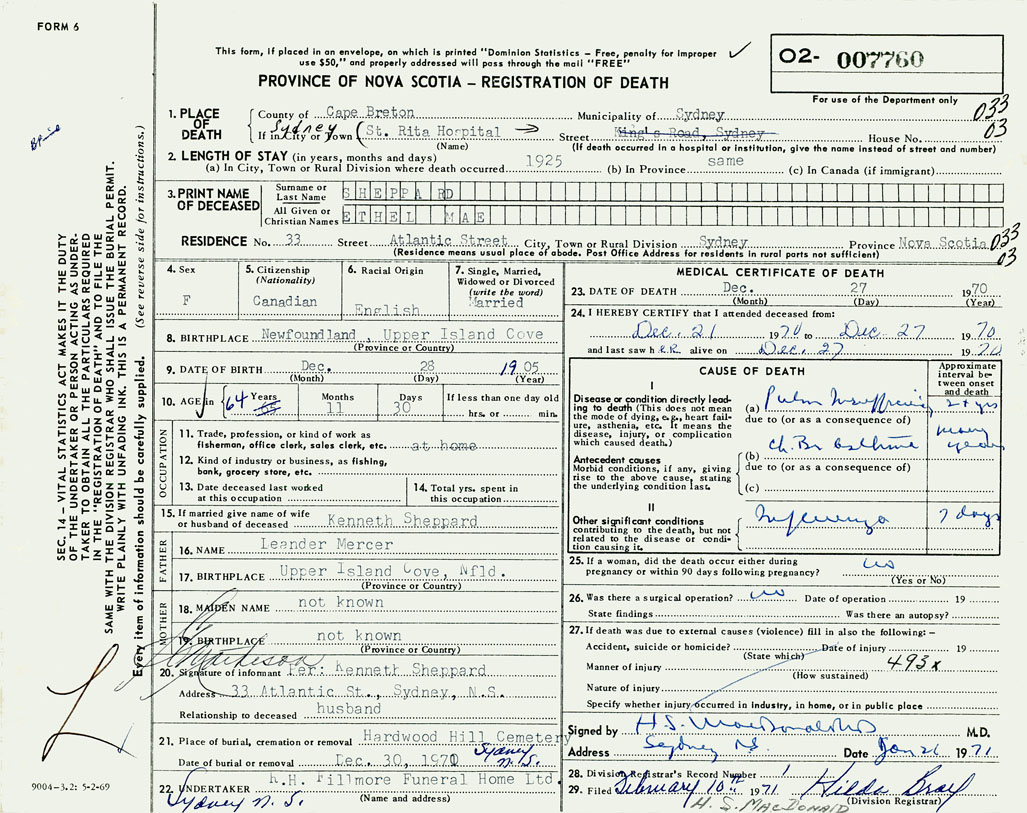 FORM 6
This form, if placed in an envelope, on which is printed "Dominion Statistics – Free, penalty for improper
use $50," and properly addressed will pass through the mail "FREE"
PROVINCE OF NOVA SCOTIA – REGISTRATION OF DEATH
O2- 007760
For use of the Department only
033
03
1. PLACE OF DEATH
County of Cape Breton Municipality of Sydney
If in City or Town Sydney (St. Rita Hospital Street King's Road, Sydney House No.
(Name) (If death occurred in a hospital or institution, give the name instead of street and number)
2. LENGTH OF STAY (in years, months and days)
(a) In City, Town or Rural Division where death occurred 1925 (b) In Province same (c) In Canada (if immigrant)
3. PRINT NAME OF DECEASED
Surname or Last Name SHEPPARD
All Given or Christian Names ETHEL MAE
RESIDENCE No. 33 Street Atlantic Street City, Town or Rural Division Sydney Province Nova Scotia
033
03
(Residence means usual place of abode. Post Office Address for residents in rural parts not sufficient)
4. Sex F
5. Citizenship (Nationality) Canadian
6. Racial Origin English
7. Single, Married, Widowed or Divorced (write the word) Married
8. BIRTHPLACE Newfoundland, Upper Island Cove
(Province or Country)
9. DATE OF BIRTH Dec. 28 1905
(Month) (Day) (Year)
10. AGE in 64 Years 65 Months 11 Days 30 If less than one day old
hrs. or min.
OCCUPATION
11. Trade, profession, or kind of work as
fisherman, office clerk, sales clerk, etc. at home
12. Kind of industry or business, as fishing,
bank, grocery store, etc.
13. Date deceased last worked
at this occupation
14. Total yrs. spent in
this occupation
15. If married give name of wife
or husband of deceased Kenneth Sheppard
FATHER
16. NAME Leander Mercer
17. BIRTHPLACE Upper Island Cove, Nfld.
(Province or Country)
MOTHER
18. MAIDEN NAME not known
19. BIRTHPLACE not known
(Province or Country)
20. Signature of informant Per: Kenneth Sheppard
Address 33 Atlantic St., Sydney, N.S.
Relationship to deceased husband
21. Place of burial, cremation or removal Hardwood Hill Cemetery
Sydney N.S.
Date of burial or removal Dec. 30, 1970
22. UNDERTAKER R.H. Fillmore Funeral Home Ltd.
Sydney N.S. (Name and address)
MEDICAL CERTIFICATE OF DEATH
23. DATE OF DEATH Dec. 27 1970
(Month) (Day) (Year)
24. I HEREBY CERTIFY that I attended deceased from:
Dec. 21 1970 to Dec 27 1970
and last saw h ER alive on Dec. 27 1970
CAUSE OF DEATH
Approximate interval between onset and death
I
Disease or condition directly leading
to death (This does not mean
the mode of dying, e.g., heart failure,
asthenia, etc. It means the
disease, injury, or complication
which caused death.)
(a) Pulm Insufficiency 2+ yrs
due to (or as a consequence of)
Antecedent causes
Morbid conditions, if any, giving
rise to the above cause, stating
the underlying condition last.
(b) Ch. Br asthma many years
due to (or as a consequence of)
(c)
II
Other significant conditions
contributing to the death, but not
related to the disease or condition
causing it.
Influenza 7 days
25. If a woman, did the death occur either during
pregnancy or within 90 days following pregnancy? no
(Yes or No)
26. Was there a surgical operation? no Date of operation 19
State findings Was there an autopsy?
27. If death was due to external causes (violence) fill in also the following:–
Accident, suicide or homicide? Date of injury 19
(State which)
Manner of injury 493x
(How sustained)
Nature of injury
Specify whether injury occurred in industry, in home, or in public place
Signed by H.S. MacDonald M.D.
Address Sydney NS. Date Jan 26 1971
28. Division Registrar's Record Number 1
29. Filed February 10th 1971 Hilda Bray
H. S. MACDONALD (Division Registrar)
SEC. 14 – VITAL STATISTICS ACT MAKES IT THE DUTY
OF THE UNDERTAKER OR PERSON ACTING AS UNDERTAKER
TO OBTAIN ALL THE PARTICULARS REQUIRED
IN THE "REGISTRATION OF DEATH" AND TO FILE THE
SAME WITH THE DIVISION REGISTRAR WHO SHALL ISSUE THE BURIAL PERMIT.
WRITE PLAINLY WITH UNFADING INK. THIS IS A PERMANENT RECORD.
Every item of information should be carefully supplied. (See reverse side for instructions.)
9004-3.2: 5-2-69